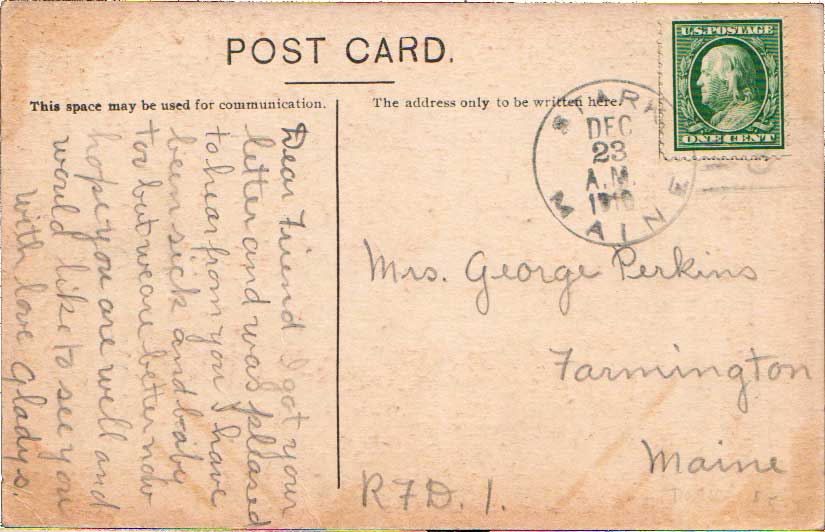 POST CARD.
This space may be used for communication.
The address only to be written here.
U.S. POSTAGE
ONE CENT
STARK
MAINE
DEC
23
A.M.
1910
Dear Friend I got your
letter and was pleased
to hear from you I have
been sick and baby
too but we are better now
hope you are well and
would like to see you
with love Gladys.
Mrs. George Perkins
Farmington
Maine
RFD. 1.